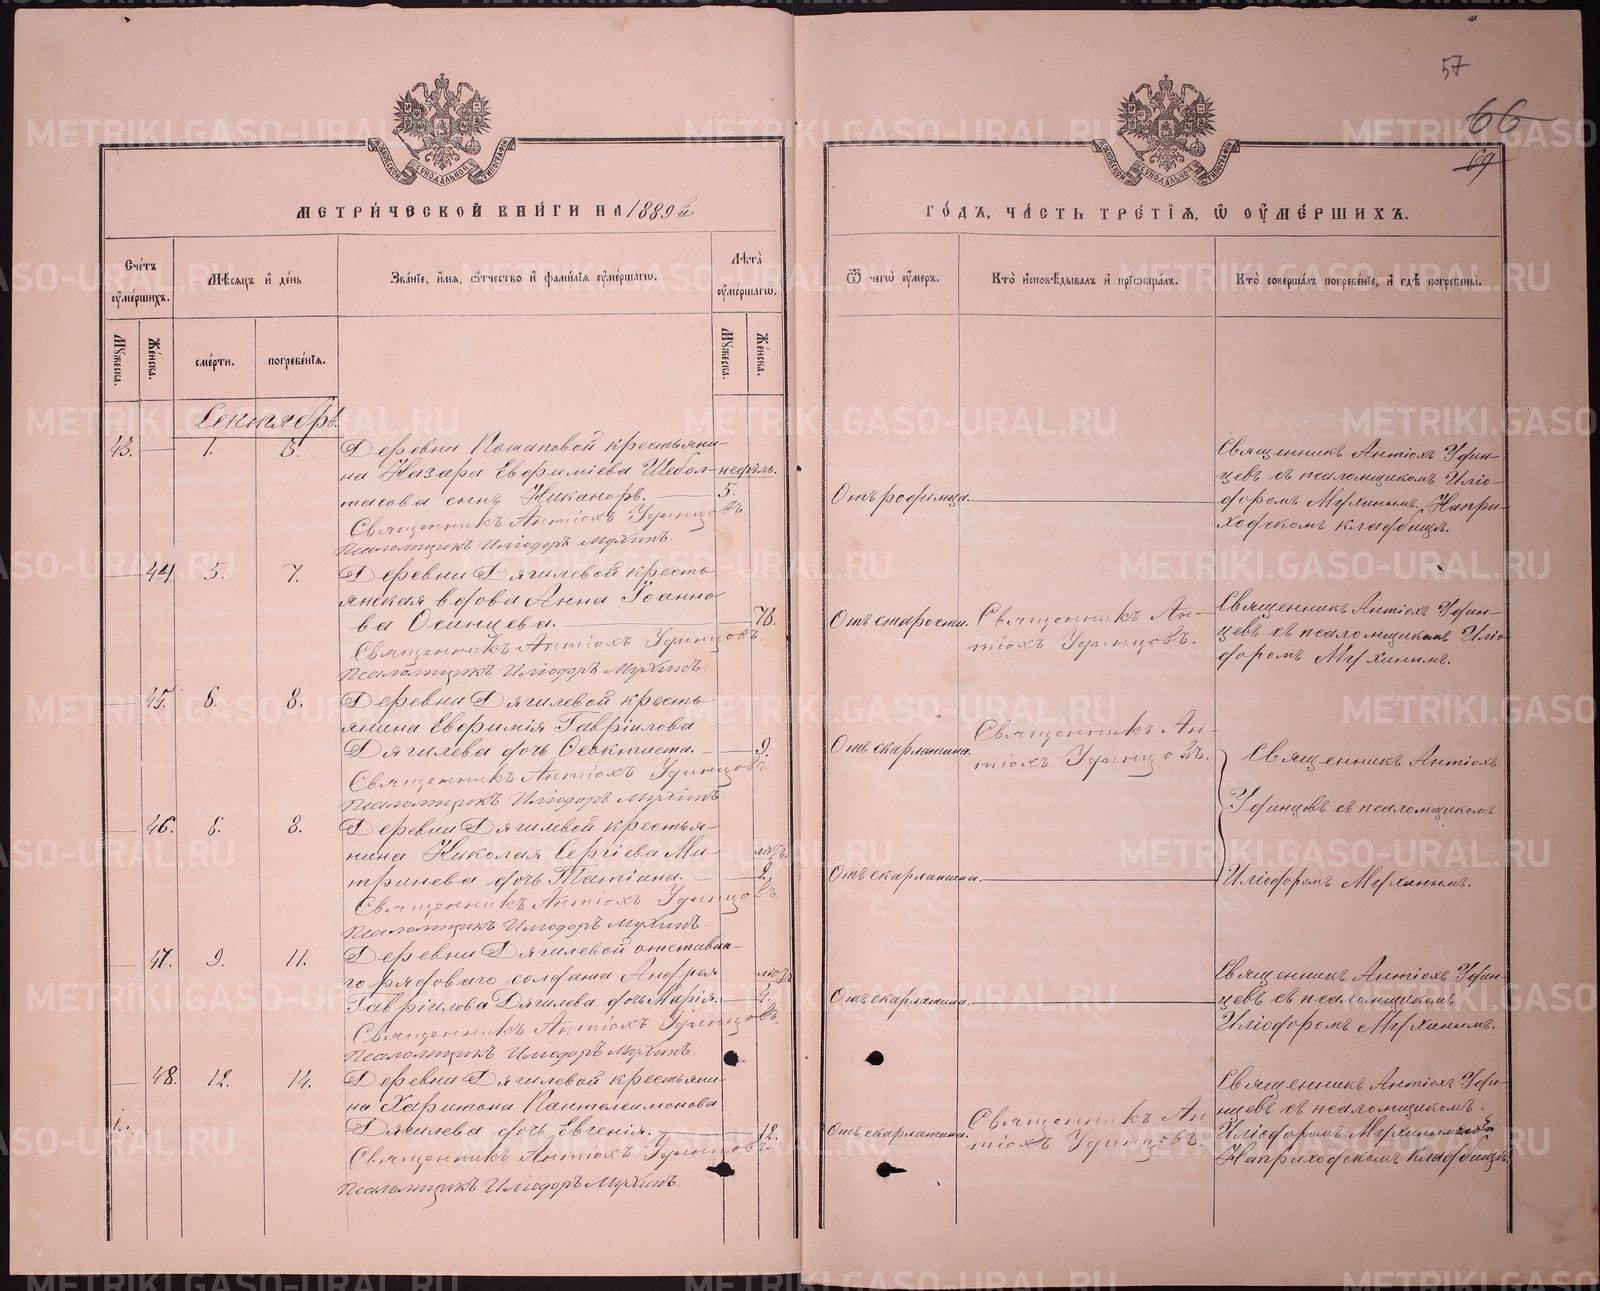 57
66
69
МЕТРИ́ЧЕСКОЙ КНИ́ГИ НА 1889й
ГО́ДЪ, ЧА́СТЬ ТРЕ́ТІѦ, Ѿ ОУМЕ́РШИХЪ.
Сче́тъ оумéршихъ.
Мѣ́сяцъ и де́нь
Зва́ніе, и́мѧ, ѻ́тчество и фами́лїѧ оумéршагѡ.
Лѣта̀ оумéршагѡ.
Ѿ чегѡ̀ оу́меръ.
Кто̀ исповѣ́дывалъ и прїѡбща́лъ.
Кто̀ соверша́лъ погребе́нїе, и гдѣ̀ погребены̀.
Мꙋ́жеска.
Же́нска.
сме́рти.
погребе́нїѧ.
Мꙋ́жеска.
Же́нска.
Сентябрь.
43. 1. 3. Деревни Потаповой крестьяни-
на Назара Евфиміева Шебол- недѣль.
тасова сынъ Никаноръ. 5.
Священникъ Антіохъ Удинцовъ.
Псаломщикъ Иліодоръ Мухинъ.
Отъ родимца.
Священникъ Антіохъ Удин-
цевъ съ псаломщикомъ Иліо-
доромъ Мухинымъ. На при-
ходскомъ кладбищѣ.
44. 5. 7. Деревни Дягилевой кресть-
янская вдова Анна Іоанно-
ва Осинцева. 78.
Священникъ Антіохъ Удинцовъ.
Псаломщикъ Иліодоръ Мухинъ.
Отъ старости.
Священникъ Ан-
тіохъ Удинцовъ.
Священникъ Антіохъ Удин-
цевъ съ псаломщикомъ Иліо-
доромъ Мухинымъ.
45. 6. 8. Деревни Дягилевой кресть-
янина Евфимія Гавріилова
Дягилева дочь Ѳеоктиста. 9.
Священникъ Антіохъ Удинцовъ.
Псаломщикъ Иліодоръ Мухинъ.
Отъ скарлатина.
Священникъ Ан-
тіохъ Удинцовъ.
Священникъ Антіохъ
Удинцовъ съ псаломщикомъ
Иліодоромъ Мухинымъ.
46. 6. 8. Деревни Дягилевой крестья-
нина Николая Сергіева Ми-
тринева дочь Татіана. 2.
Священникъ Антіохъ Удинцовъ
Псаломщикъ Иліодоръ Мухинъ.
Отъ скарлатина.
47. 9. 11. Деревни Дягилевой отставна-
го рядоваго солдата Андрея
Гавріилова Дягилева дочь Марія. 4.
Священникъ Антіохъ Удинцовъ.
Псаломщикъ Иліодоръ Мухинъ.
Отъ скарлатина.
Священникъ Антіохъ Удин-
цевъ съ псаломщикомъ
Иліодоромъ Мухинымъ.
48. 12. 14. Деревни Дягилевой крестьяни-
на Харитона Пантелеимонова
Дягилева дочь Евгенія. 12.
Священникъ Антіохъ Удинцовъ
Псаломщикъ Иліодоръ Мухинъ.
Отъ скарлатина.
Священникъ Ан-
тіохъ Удинцовъ.
Священникъ Антіохъ Уди-
нцевъ съ псаломщикомъ.
Иліодоромъ Мухинымъ
На приходскомъ кладбищѣ.
METRIKI.GASO-URAL.RU